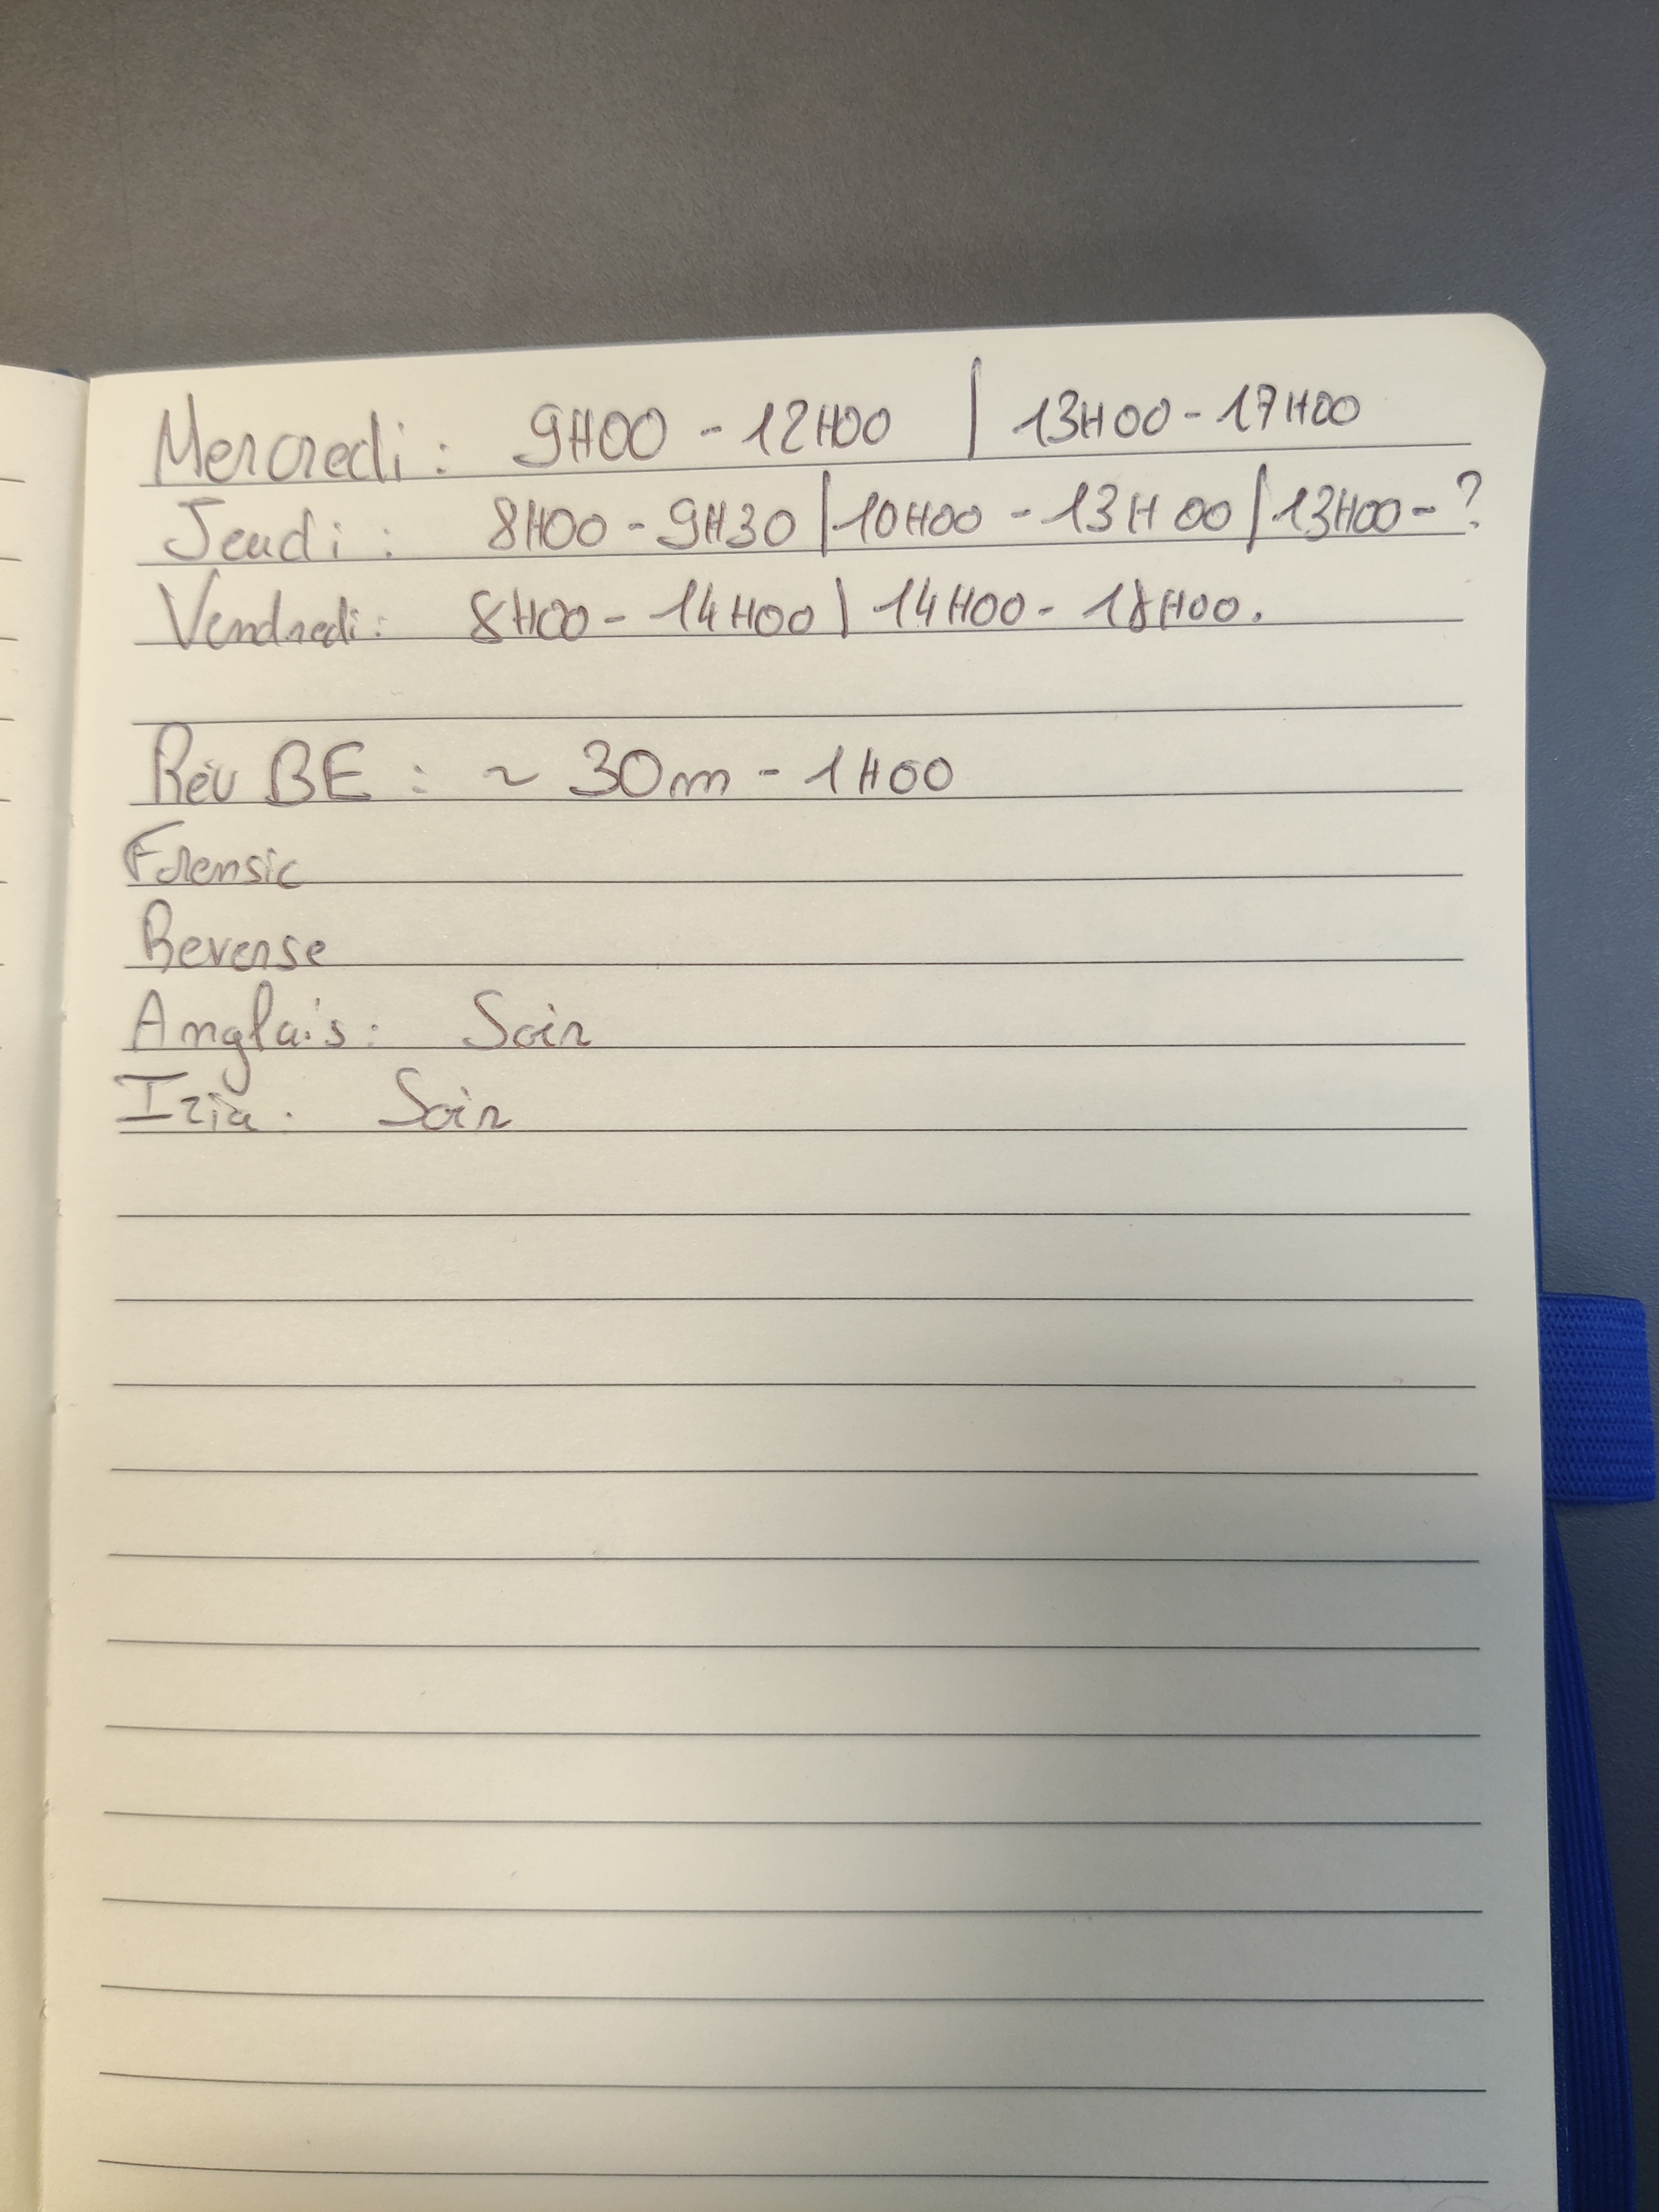 Mercredi : 9H00 - 12H00 | 13H00 - 17H00
Jeudi : 8H00 - 9H30 | 10H00 - 13H00 | 13H00 - ?
Vendredi : 8H00 - 14H00 | 14H00 - 18H00.
Rév BE : ~ 30m - 1H00
Forensic
Reverse
Anglais : Soir
Izia : Soir